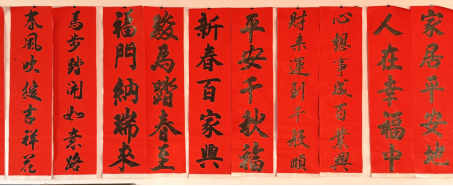 家居平安地
人在幸福中
心想事成百業興
財來運到千般順
平安千秋福
新春百家興
駿馬踏春至
福門納瑞來
馬步踏開如意路
春風吹綻吉祥花